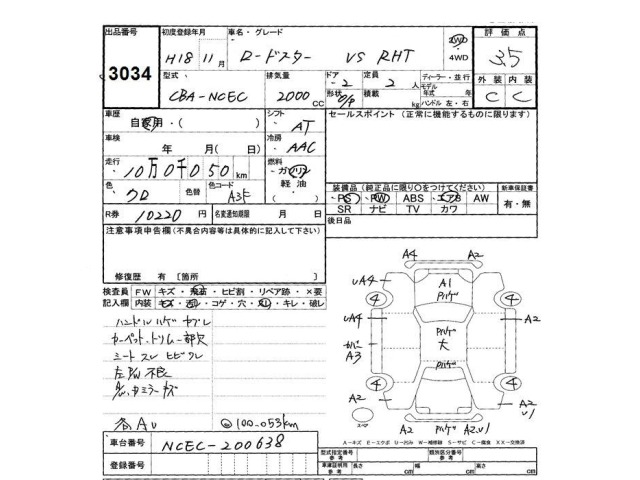 出品番号 3034
初度登録年月 H18年11月
車名・グレード ロードスター VS RHT
2WD ・ 4WD
評価点 3.5
外装 内装
C C
型式 CBA-NCEC
排気量 2000 CC
ドア 2
形状 O/P
定員 2 人
積載 kg
ディーラー・並行
モデル年式 年式
ハンドル 左・右
車歴 自家用・( )
シフト AT
セールスポイント (正常に機能するものに限ります)
車検 年 月( 日)
冷房 AAC
走行 10万0千050km
燃料 ガソリン 軽油 ( )
色 クロ
色替
色コード A3F
装備品(純正品に限り○をつけてください)
PS PW ABS エアB AW
SR ナビ TV カワ
新車保証書 有・無
R券 10220円
名変通知期限 月 日
後日品
注意事項申告欄(不具合内容等は具体的に記入して下さい)
修復歴 有 [箇所 ]
検査員記入欄
FW キズ・飛石・ヒビ割・リペア跡・×要
内装 キズ・汚レ・コゲ・穴・スレ・キレ・破レ
ハンドルハゲ カブレ
カーペット・トリム一部欠
シートスレ ヒビワレ
各AU
◎100-053km
車台番号 NCEC-200638
登録番号
A4 A2
UA4 A1 ハゲ
4 4
UA4 ハゲ 大 A2
カバー A3
ハゲ
4 4
A2 A2 U1
スペア
A2 A2.U1
A-キズ E-エクボ U-凹み W-補修跡 S-サビ C-腐食 XX-交換済
型式指定番号 参考
類別区分番号 参考
車庫証明用 参考 長さ cm 幅 cm 高さ cm